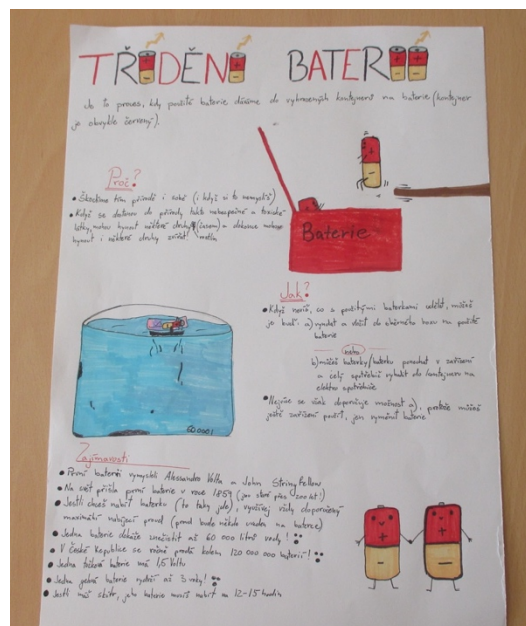 TŘÍDĚNÍ BATERIÍ
Je to proces, kdy použité baterie dáváme do vyhrazených kontejnerů na baterie (kontejner
je obvykle červený).
Proč?
• Škodíme tím přírodě i sobě (i když si to nemyslíš)
• Když se dostanou do přírody takto nebezpečné a toxické
látky, mohou hynout některé druhy (časem) a dokonce mohou
hynout i některé druhy zvířat
Baterie
Jak?
• Když nevíš, co s použitými baterkami udělat, můžeš
je buď a) vyndat a vložit do sběrného boxu na použité
baterie
nebo
b) můžeš baterky/baterku ponechat v zařízení
a celý spotřebič vyhodit do kontejneru na
elektro spotřebiče
• Nejvíce se však doporučuje možnost a), protože můžeš
ještě zařízení použít, jen vyměnit baterie
60 000 l
Zajímavosti
• První baterii vymysleli Alessandro Volta a John Stringfellow
• Na svět přišla první baterie v roce 1859
• Jestli chceš nabít baterku (to taky jde), využívej vždy doporučený
maximální nabíjecí proud (proud bude někde uveden na baterce)
• Jedna baterie dokáže znečistit až 60 000 litrů vody!
• V České Republice se ročně prodá kolem 120 000 000 baterií!
• Jedna tužková baterie má 1,5 Voltu
• Jedna baterie vydrží až 3 roky!
• Jestli máš skútr, jeho baterie musíš nabít na 12-15 hodin